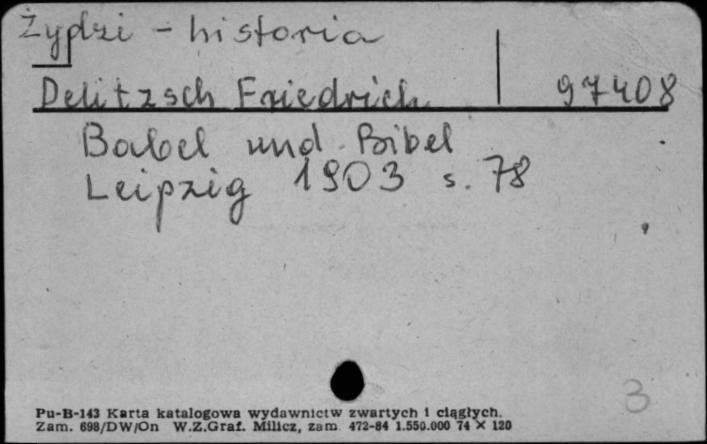 Żydzi - historia
Delitzsch Friedrich 97408
Babel und Bibel
Leipzig 1903 s. 78
3
Pu-B-143 Karta katalogowa wydawnictw zwartych i ciągłych.
Zam. 698/DW/On W.Z.Graf. Milicz, zam. 472-84 1.550.000 74 × 120